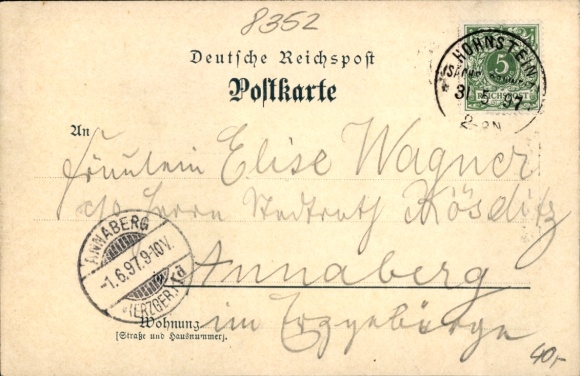 8352
Deutsche Reichspost
Postkarte
5
REICHSPOST
HOHNSTEIN
31 5 97
2-3N
An
Fräulein Elise Wagner
c/o Herrn Stadtrath Rösditz
ANNABERG
1.6.97.9-10V.
(ERZGEB.)
Annaberg
Wohnung
im Erzgebirge
[Straße und Hausnummer].
40,-